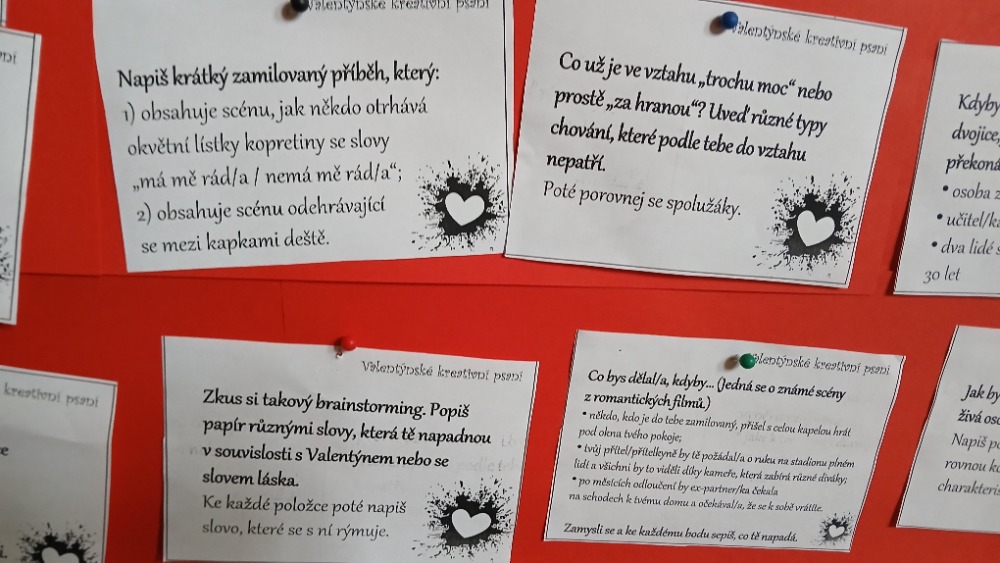 Valentýnské kreativní psaní
Napiš krátký zamilovaný příběh, který:
1) obsahuje scénu, jak někdo otrhává
okvětní lístky kopretiny se slovy
„má mě rád/a / nemá mě rád/a“;
2) obsahuje scénu odehrávající
se mezi kapkami deště.
Valentýnské kreativní psaní
Co už je ve vztahu „trochu moc“ nebo
prostě „za hranou“? Uveď různé typy
chování, které podle tebe do vztahu
nepatří.
Poté porovnej se spolužáky.
Kdyby
dvojice,
překoná
• osoba z
• učitel/k
• dva lidé s
30 let
kreativní psaní
Valentýnské kreativní psaní
Zkus si takový brainstorming. Popiš
papír různými slovy, která tě napadnou
v souvislosti s Valentýnem nebo se
slovem láska.
Ke každé položce poté napiš
slovo, které se s ní rýmuje.
Valentýnské kreativní psaní
Co bys dělal/a, kdyby... (Jedná se o známé scény
z romantických filmů.)
• někdo, kdo je do tebe zamilovaný, přišel s celou kapelou hrát
pod okna tvého pokoje;
• tvůj přítel/přítelkyně by tě požádal/a o ruku na stadionu plném
lidí a všichni by to viděli díky kameře, která zabírá různé diváky;
• po měsících odloučení by ex-partner/ka čekala
na schodech k tvému domu a očekával/a, že se k sobě vrátíte.
Zamysli se a ke každému bodu sepiš, co tě napadá.
Jak by
živá oso
Napiš po
rovnou k
charakteri